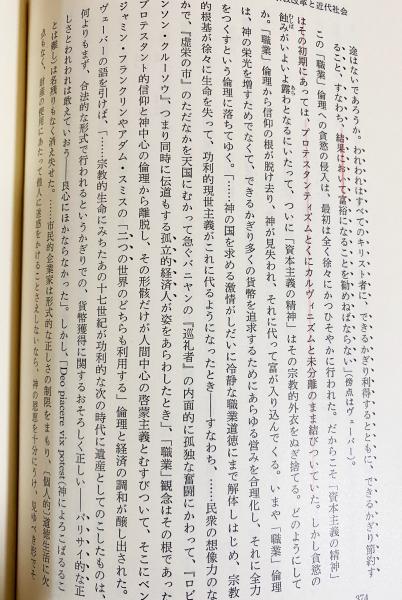 改革と近代社会
374
途はないであろうか。われわれはすべてのキリスト者に、できるかぎり利得するとともに、できるかぎり節約す
ること、すなわち、結果において富裕になることを勧めねばならない。」(傍点はヴェーバー)。
この「職業」倫理への貪慾の侵入は、最初は全く徐々にかつひそやかに行われた。だからこそ「資本主義の精神」
はその初期にあっては、プロテスタンティズムとくにカルヴィニズムと未分離のまま結びついていた。しかし貪慾の
蝕みがいよいよ露わとなるにいたって、ついに「資本主義の精神」はその宗教的外衣をぬぎ捨てる。どのようにして
か。「職業」倫理から信仰の根が脱け去り、神が見失われ、それに代って富が入り込んでくる。いまや「職業」倫理
は、神の栄光を増すためでなくて、できるかぎり多くの貨幣を追求するためにあらゆる営みを合理化し、それに全力
をつくすという倫理に落ちてゆく。「……神の国を求める激情がしだいに冷静な職業道徳にまで解体しはじめ、宗教
的根基が徐々に生命を失って、功利的現世主義がこれに代るようになったとき――すなわち、……民衆の想像力のな
かで、『虚栄の市』のただなかを天国にむかって急ぐバニヤンの『巡礼者』の内面的に孤独な奮闘にかわって、『ロビ
ンソン・クルーソウ』、つまり同時に伝道もする孤立的経済人が姿をあらわしたとき」、「職業」観念はその根であった
プロテスタント的信仰と神中心の倫理から離脱し、その形骸だけが人間中心の啓蒙主義とむすびついて、そこにベン
ジャミン・フランクリンやアダム・スミスの「二つの世界のどちらも利用する」倫理と経済の調和が醸し出された。
ヴェーバーの語を引けば、「……宗教的生命にみちたあの十七世紀が功利的な次の時代に遺産としてのこしたものは、
何よりもまず、合法的な形式で行われるというかぎりでの、貨幣獲得に関するおそろしく正しい――パリサイ的な正
しさとわれわれは敢えていおう――良心にほかならなかった」。しかし、「Deo placere vix potest(神によろこばるるこ
とは難し)」は名残りもなく消え失せた。……市民的企業家は形式的な正しさの制限をまもり、(個人的)道徳生活に欠
点もなく、財産の使用にあたって他人に迷惑をかけることさえしないなら、神の恩恵を十分にうけ、見ゆべき形でそ